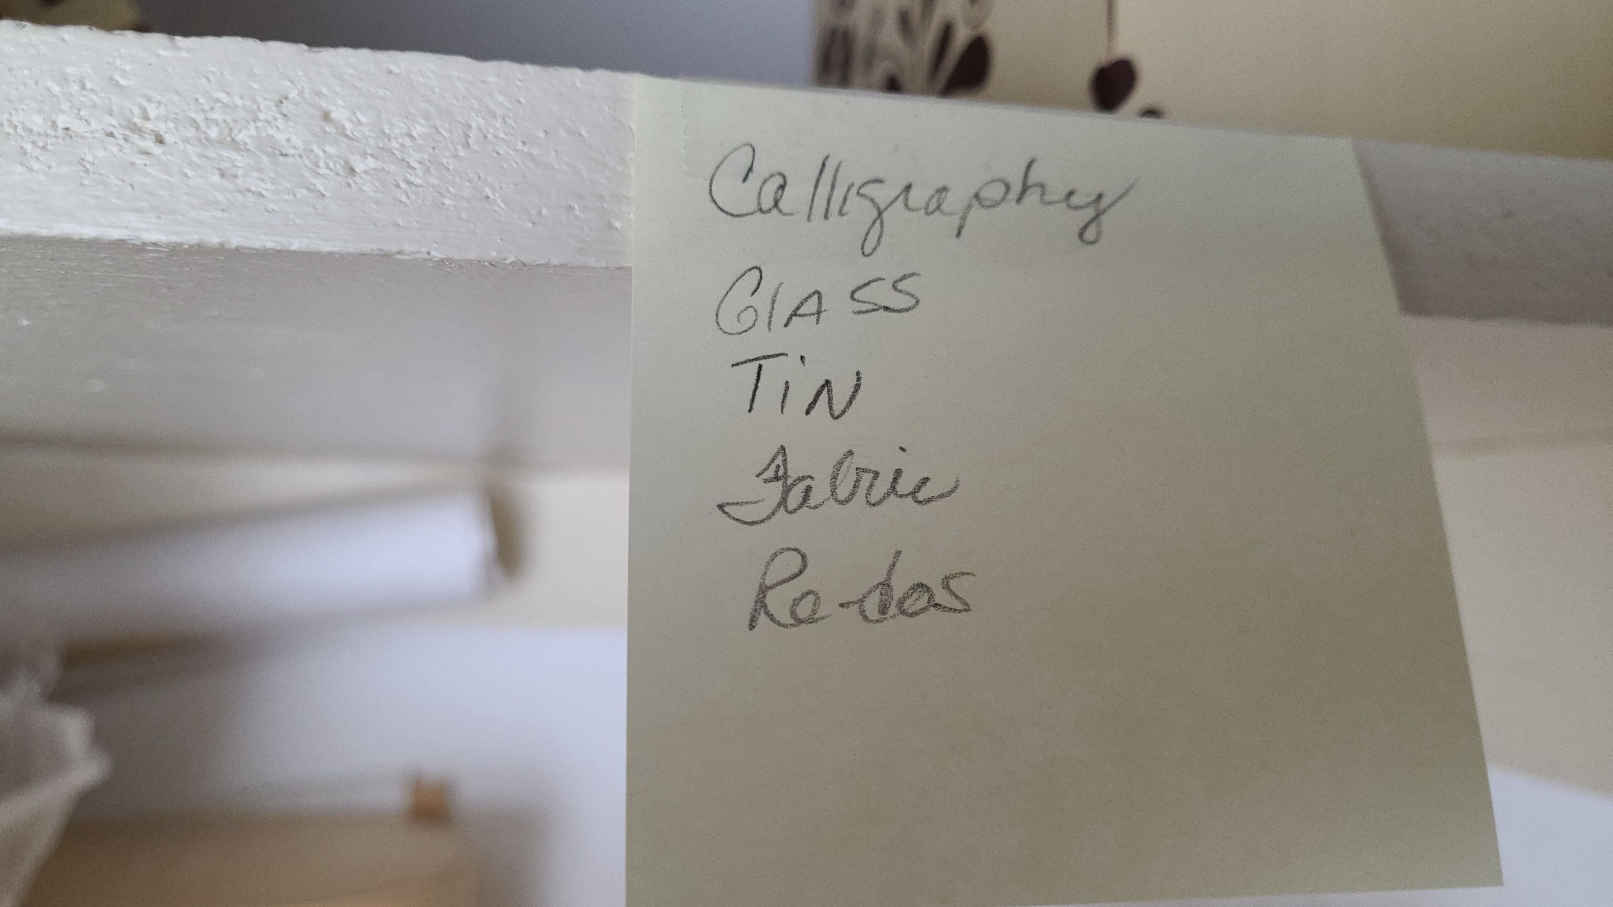 Calligraphy
GlASS
TiN
Fabric
Re-dos